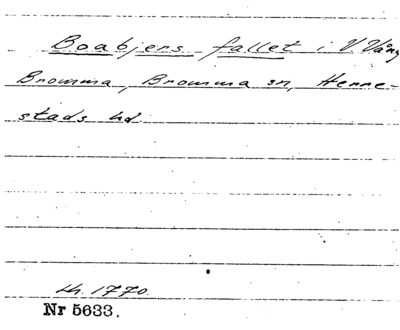 Boabjers fallet i V. Vång
Bromma, Bromma sn, Herre-
stads hd.
kh. 1770.
Nr 5633.